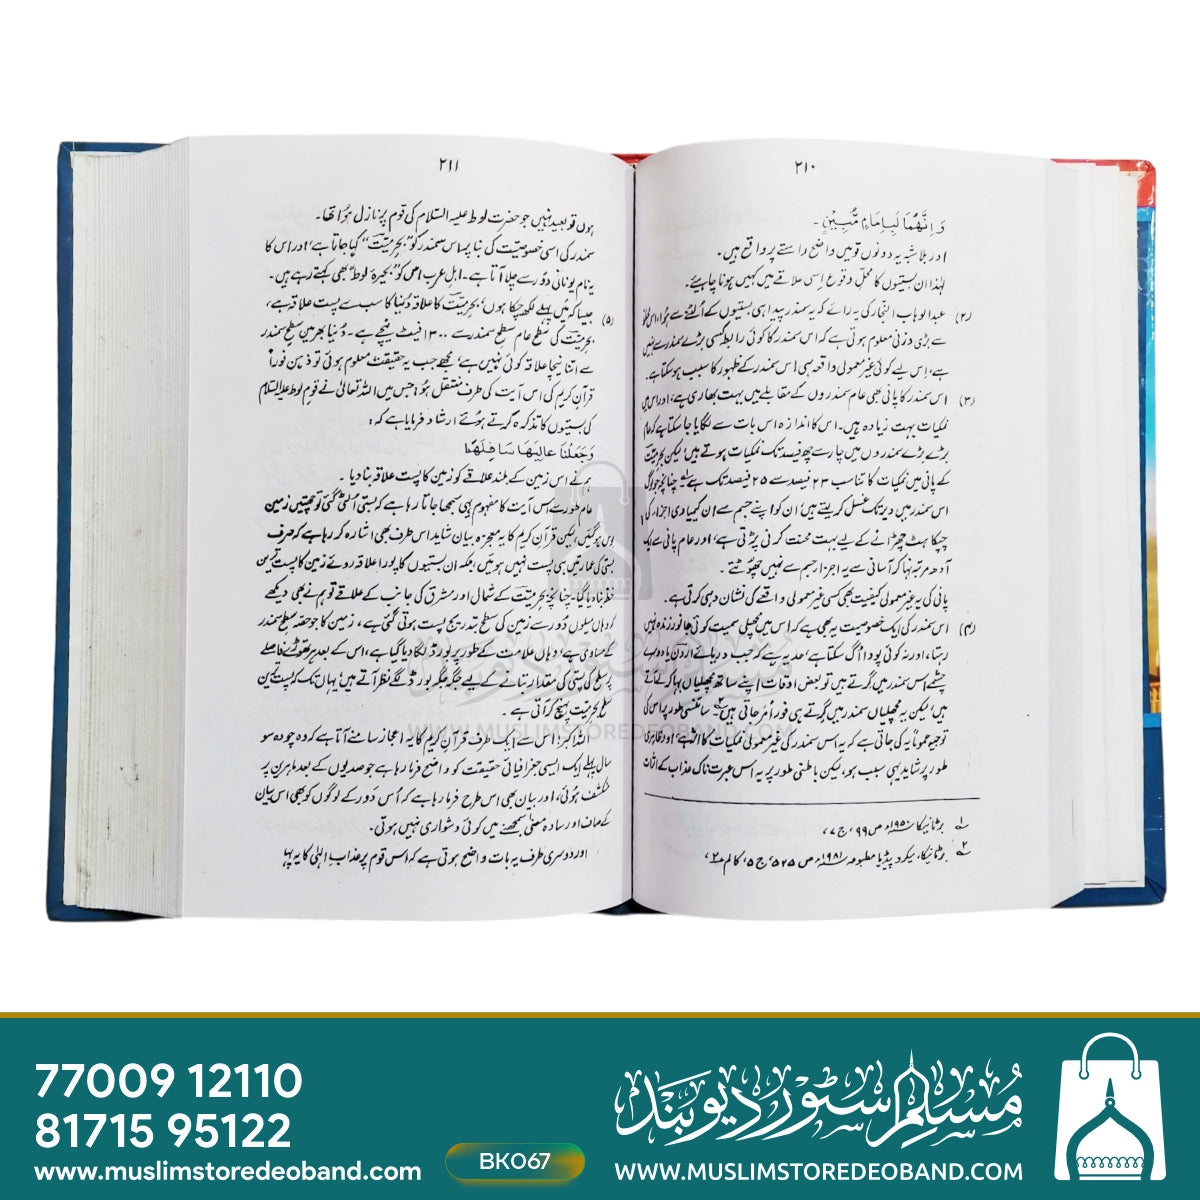 ۲۱۰
وَاِنَّهُمَا لَبِاِمَامٍ مُّبِيْنٍ۔
اور بلاشبہ یہ دونوں قومیں واضح راستے پر واقع ہیں۔
لہٰذا ان بستیوں کا محلِّ وقوع اسی علاقے میں کہیں ہونا چاہیئے۔
(۲) عبدالوہاب النجار کی یہ رائے کہ یہ سمندر پیدا ہی بستیوں کے اُلٹنے سے ہوا،
سے بڑی وزنی معلوم ہوتی ہے کہ اس سمندر کا کوئی رابطہ کسی بڑے سمندر سے نہیں
ہے، اس لیے کوئی غیر معمولی واقعہ ہی اس سمندر کے ظہور کا سبب ہوسکتا ہے۔
(۳) اس سمندر کا پانی بھی عام سمندروں کے مقابلے میں بہت بھاری ہے، اور اس میں
نمکیات بہت زیادہ ہیں۔ اس کا اندازہ اس بات سے لگایا جا سکتا ہے کہ عام
بڑے بڑے سمندروں میں چار سے چھ فیصد تک نمکیات ہوتے ہیں، لیکن بحرِ میّت
کے پانی میں نمکیات کا تناسب ۲۳ فیصد سے ۲۵ فیصد تک ہے۔ چنانچہ جو لوگ
اس سمندر میں دیر تک غسل کر لیتے ہیں، ان کو اپنے جسم سے ان کیمیاوی اجزاء کی
چپکاہٹ چھڑانے کے لیے بہت محنت کرنی پڑتی ہے، اور عام پانی سے ایک
آدھ مرتبہ نہا کر آسانی سے یہ اجزاء جسم سے نہیں چھوٹتے۔
پانی کی یہ غیر معمولی کیفیت بھی کسی غیر معمولی واقعے کی نشان دہی کرتی ہے۔
(۴) اس سمندر کی ایک خصوصیت یہ بھی ہے کہ اس میں مچھلی سمیت کوئی جانور زندہ نہیں
رہتا، اور نہ کوئی پودا اُگ سکتا ہے، حد یہ ہے کہ جب دریائے اردن یا دوسرے
چشمے اس سمندر میں گرتے ہیں تو بعض اوقات اپنے ساتھ مچھلیاں بہا کر لے آتے
ہیں، لیکن یہ مچھلیاں سمندر میں گرتے ہی فوراً مر جاتی ہیں۔ سائنسی طور پر اس کی
توجیہ عموماً یہ کی جاتی ہے کہ یہ اس سمندر کی غیر معمولی نمکیات کا اثر ہے، اور ظاہری
طور پر شاید یہی سبب ہو، لیکن باطنی طور پر یہ اس عبرت ناک عذاب کے اثرات
۱ برٹانیکا ۱۹۵۰ء ص ۹۹، ج ۷،
۲ برٹانیکا، میکروپیڈیا مطبوعہ ۱۹۸۱ء ص ۵۲۵، ج ۵، کالم ۲،
۲۱۱
ہوں تو بعید نہیں جو حضرت لوط علیہ السلام کی قوم پر نازل ہوا تھا۔
سمندر کی اسی خصوصیّت کی بنا پر اس سمندر کو "بحرِ میّت" کہا جاتا ہے، اور اس کا
یہ نام یونانی دَور سے چلا آتا ہے۔ اہلِ عرب اس کو "بحیرۂ لوط" بھی کہتے رہے ہیں۔
(۵) جیسا کہ میں پہلے لکھ چکا ہوں، بحرِ میّت کا علاقہ دُنیا کا سب سے پست علاقہ ہے،
بحرِ میّت کی سطح عام سطحِ سمندر سے ۱۳۰۰ فیٹ نیچے ہے۔ دُنیا بھر میں سطحِ سمندر
سے اتنا نیچا علاقہ کوئی نہیں ہے، مجھے جب یہ حقیقت معلوم ہوئی تو ذہن فوراً
قرآنِ کریم کی اس آیت کی طرف منتقل ہوا جس میں اللہ تعالیٰ نے قومِ لوط علیہ السلام
کی بستیوں کا تذکرہ کرتے ہوئے ارشاد فرمایا ہے کہ:
وَجَعَلْنَا عَالِيَهَا سَافِلَهَا
ہم نے اس زمین کے بلند علاقے کو زمین کا پست علاقہ بنا دیا۔
عام طور سے اس آیت کا مفہوم یہی سمجھا جاتا رہا ہے کہ بستی اُلٹ گئی تو چھتیں زمین
بوس ہو گئیں، لیکن قرآنِ کریم کا یہ معجزہ بیان شاید اس طرف بھی اشارہ کر رہا ہے کہ صرف
بستی کی عمارتیں ہی پست نہیں ہوئیں، بلکہ ان بستیوں کا پورا علاقہ روئے زمین کا پست ترین
خطہ بنا دیا گیا۔ چنانچہ بحرِ میّت کے شمالی اور مشرق کی جانب کے علاقے تو ہم نے بھی دیکھے
کہ وہاں میلوں دُور سے زمین کی سطح بتدریج پست ہوتی گئی ہے، زمین کا جو حصہ سطحِ سمندر
کے مساوی ہے، وہاں علامت کے طور پر بورڈ لگا دیا گیا ہے، اس کے بعد ہر تھوڑے فاصلے
پر سطح کی پستی کی مقدار بتانے کے لیے جگہ جگہ بورڈ لگے نظر آتے ہیں، یہاں تک کہ پست ترین
سطح بحرِ میّت پہنچ کر آتی ہے۔
اللہ اکبر! اس سے ایک طرف قرآنِ کریم کا یہ اعجاز سامنے آتا ہے کہ وہ چودہ سو
سال پہلے ایک ایسی جغرافیائی حقیقت کو واضح فرما رہا ہے جو صدیوں کے بعد ماہرین پر
منکشف ہوئی، اور بیان بھی اس طرح فرما رہا ہے کہ اُس دَور کے لوگوں کو بھی اس بیان
کے صاف اور سادہ معنیٰ سمجھنے میں کوئی دشواری نہیں ہوتی۔
اور دوسری طرف یہ بات واضح ہوتی ہے کہ اس قوم پر عذابِ الٰہی کا یہ پہلو
مسلم سٹور دیوبند
WWW.MUSLIMSTOREDEOBAND.COM
77009 12110
81715 95122
www.muslimstoredeoband.com
BK067
مسلم سٹور دیوبند
WWW.MUSLIMSTOREDEOBAND.COM